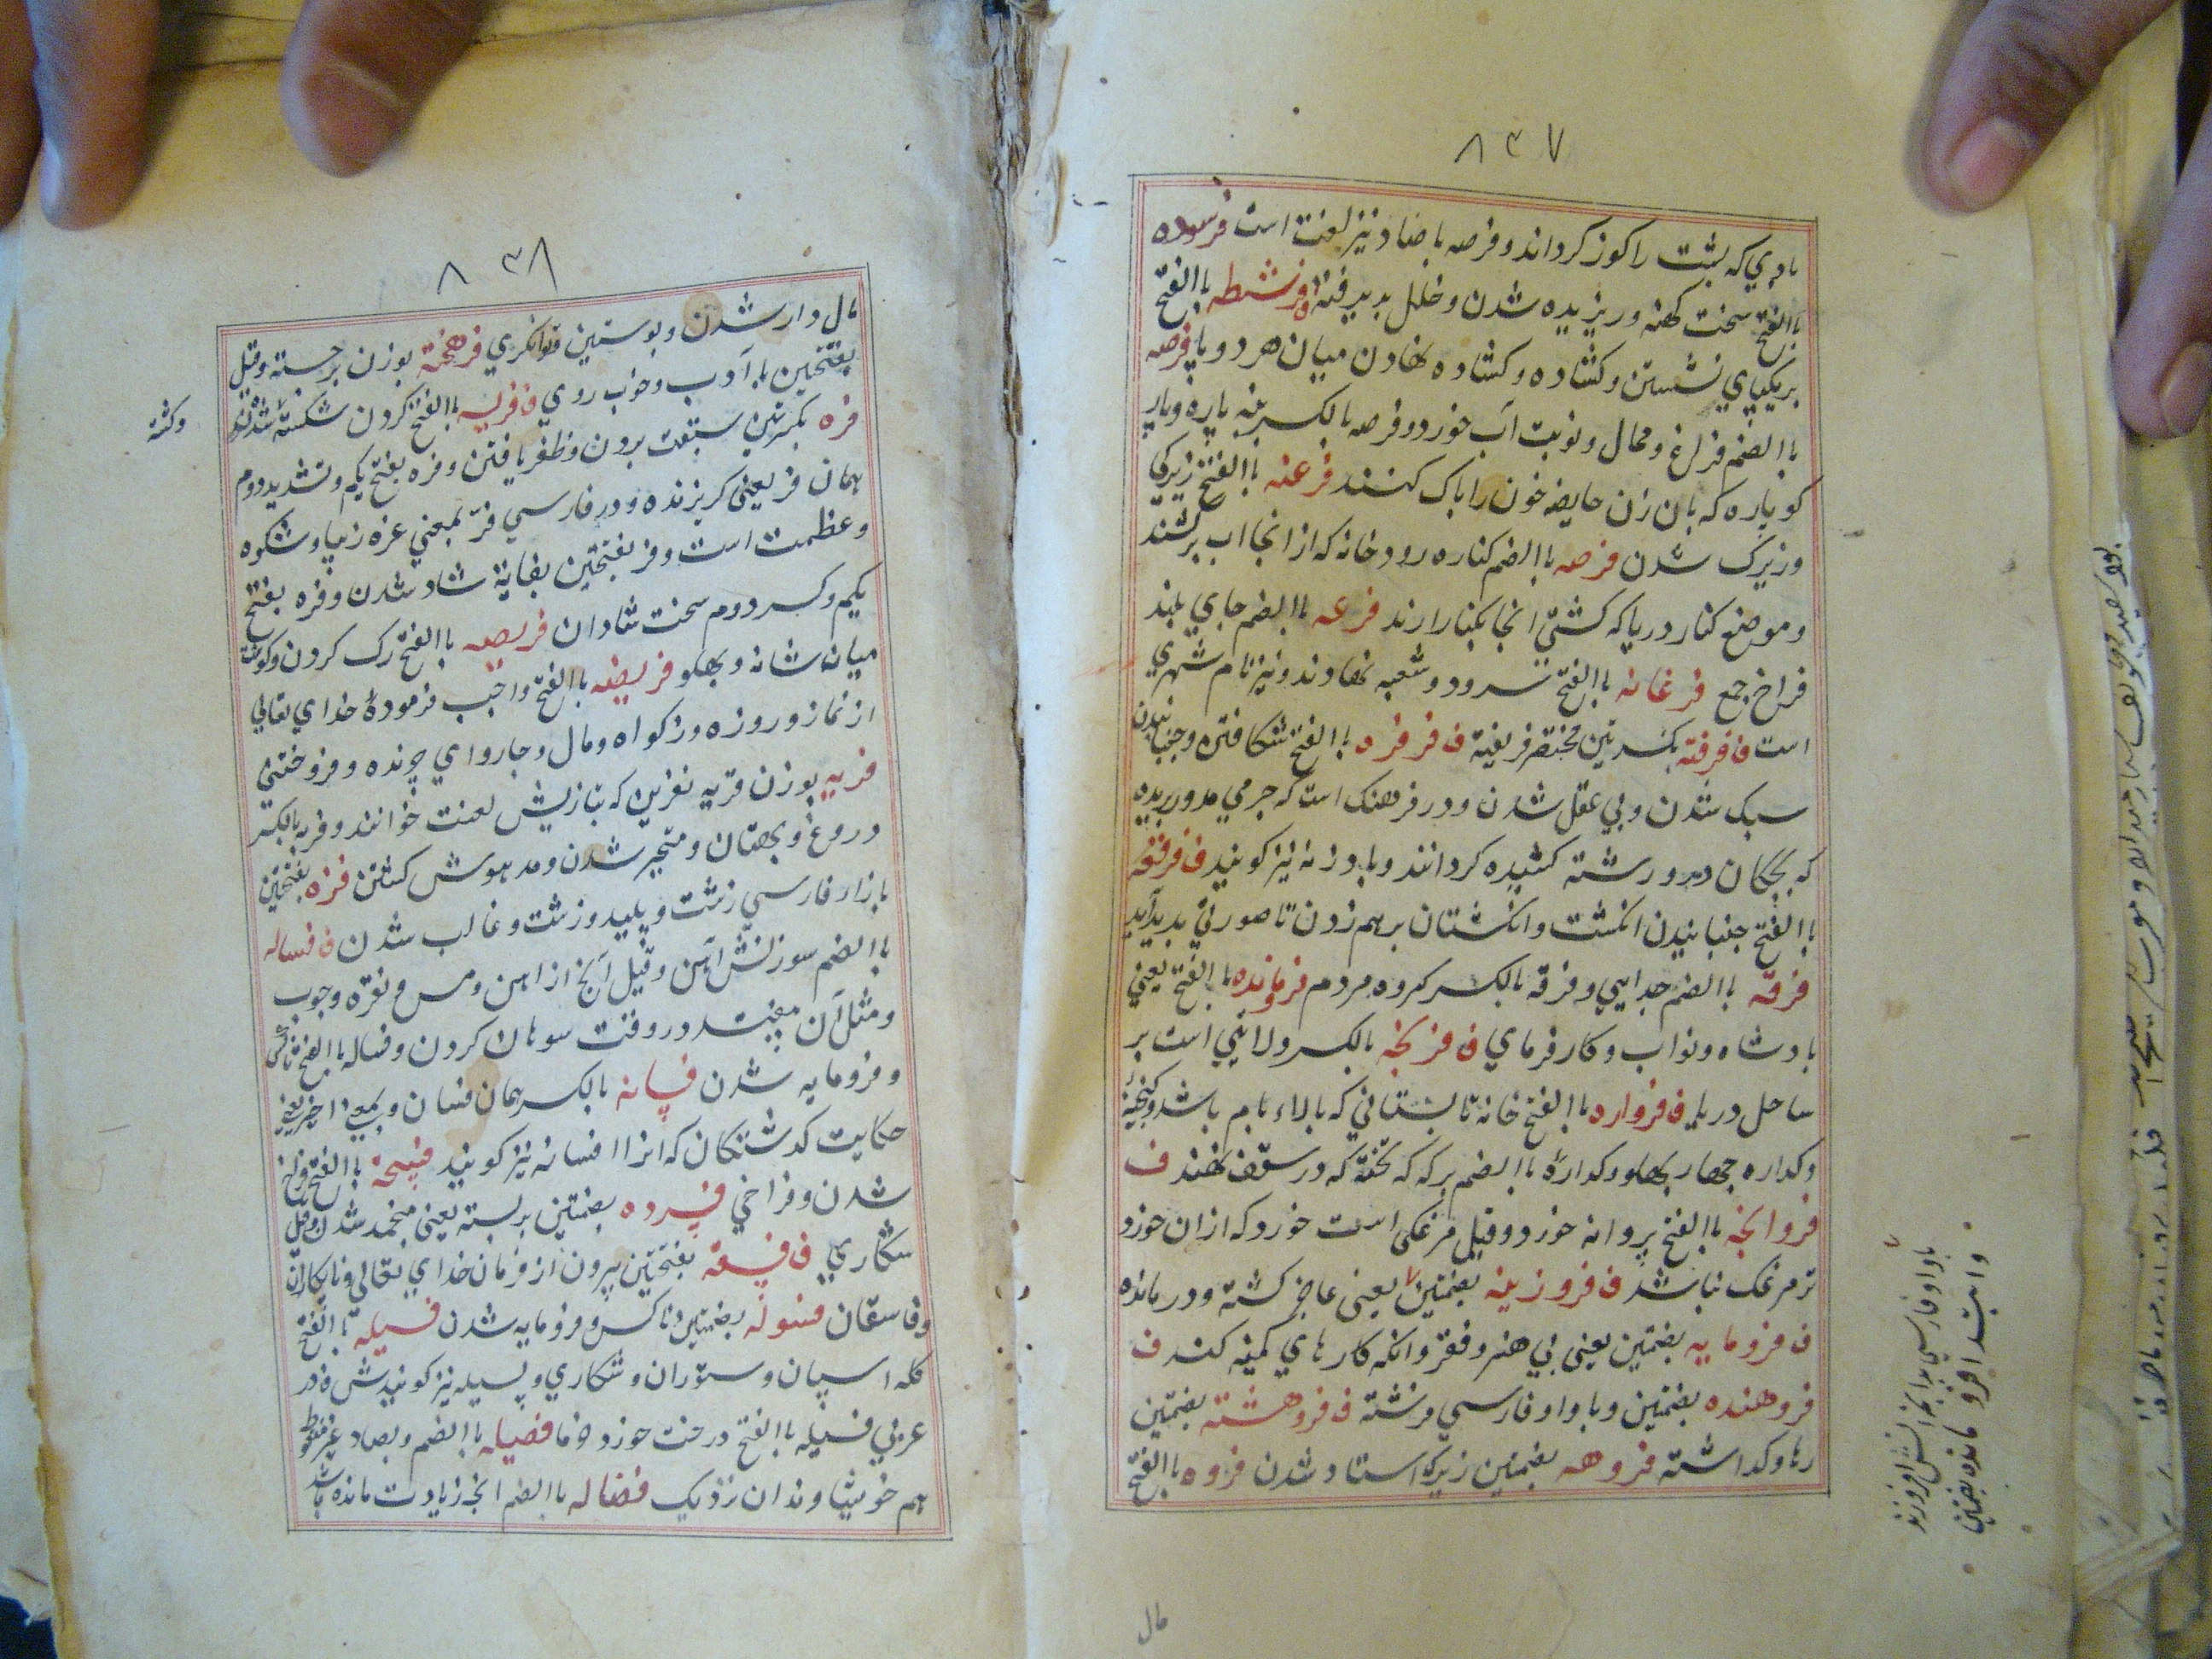 ۸۳۷
بادي كه پشت را كوز كرداند و فرصه با ضاد نيز لغت است فرسوده
باالفتح سخت كهنه و ريزيده شدن و خلل پديرفته فرشطه باالفتح
بر يكپاي نشستن و كشاده و كشاده نهادن ميان هر دو پا فرصه
باالضم فراغ و محال و نوبت آب خورد و فرصه بالكسر پنبه پاره و پار
كو پاره كه بان زن حايضه خون را پاك كنند فرعنه باالفتح زيركي
و زيرك شدن فرضه باالضم كناره رودخانه كه از انجا اب بركشند
و موضع كنار دريا كه كشتي انجا بكنار ارند فرعه باالضم جاي بلند
فراخ جمع فرغانه باالفتح سرود و شعبه نهاوند و نيز نام شهري
است ف فرفته بكسرتين مختصر فريفته ف فرفره باالفتح شكافتن و جنبانيدن
سبك شدن و بي عقل شدن و در فرهنك است كه جرمي مدور بريده
كه بچكان در و رشته كشيده كردانند و بادزنه نيز كويند ف فرقعه
باالفتح جنبانيدن انكشت و انكشتان برهم زدن تا صورتي پديد آيد
فرقه باالضم جدايي و فرقه بالكسر كروه مردم فرمانده باالفتح يعني
پادشاه و نواب و كار فرماي ف فرنجه بالكسر ولايتي است بر
ساحل دريا ف فرواره باالفتح خانه تابستاني كه بالاء بام باشد و كنجينه
و كداره چهار پهلو و كداره باالضم بركه كه تخته كه در سقف نهند ف
فروانجه باالفتح پروانه خورد و قيل مرغكي است خورد كه ازان خورد
تر مرغك نباشد ف فروزينه بضمتين يعني عاجز كشته و درمانده
ف فرومايه بضمتين يعني بي هنر و فقر و انكه كارهاي كمينه كند ف
فروهنده بضمتين و با واو فارسي فرشته ف فروهشته بضمتين
رها و كداشته فروهه بضمتين زيرك استاد شدن فروه باالفتح
با واو فارسي بدانچه اتش افروزند
و ابتد افرو مانده بضمتين
مال
۸۳۸
مال دار شدن و پوستين توانكري فرهخته بوزن برجسته و قيل
بفتحتين با آدب و خوب روي ف فريسه باالفتح كردن شكسته شدن
وكشته
فره بكسرتين سبقت بردن و ظفر يافتن و فره بفتح يكم و تشديد دوم
همان فر يعني كريزنده و در فارسي فر بمعني عزه زيبا و شكوه
و عظمت است و فر بفتحتين بغايه شاد شدن و فره بفتح
يكم و كسر دوم سخت شادان فريصه باالفتح رك كردن و كوشت
ميان شانه و پهلو فريضه باالفتح واجب فرمودۀ خداي تعالي
از نماز و روزه و زكواه و مال و چارواي چرنده و فروختني
فريه بوزن قريه نفرين كه بتازيش لعنت خوانند و فريه بالكسر
دروغ و بهتان و متحير شدن و مدهوش كشتن فزه بفتحتين
بازا فارسي زشت و پليد و زشت و غالب شدن ف فساله
باالضم سوزنش آهن و قيل آنچ از اهن و مس و نقره و چوب
و مثل آن بيفتد در وقت سوهان كردن و فساله باالفتح ناكس
و فرومايه شدن فسانه بالكسر همان فسان و بمعني اخير يعني
حكايت كدشتكان كه انرا افسانه نيز كويند فسحه باالفتح فراخ
شدن و فراخي فسرده بضمتين بربسته يعني منجمد شدن و قيل
شكاري ف فسقه بفتحتين بيرون از فرمان خداي تعالي و نابكاران
و فاسقان فسوله بضمتين ناكس و فرومايه شدن فسيله باالفتح
كله اسپان و ستوران و شكاري و پسيله نيز كويندش و در
عربي فسيله باالفتح درخت خورد خرما فصيله باالضم و بصاد غير منقوط
هم خويشاوندان نزديك فضاله باالضم انچه زيادت مانده باشد